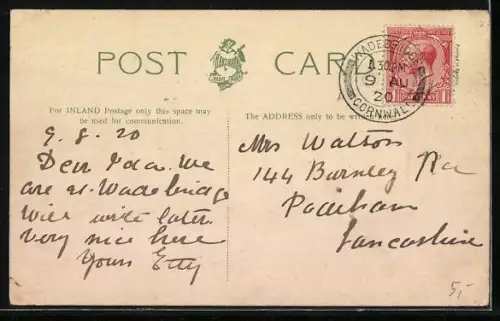 POST CARD
For INLAND Postage only this space may
be used for communication.
The ADDRESS only to be written
9. 8. 20
Dear Ida. We
are at Wadebridge
Will write later
Very nice here
Yours Etty
Mrs Walton
144 Burnley Rd
Padiham
Lancashire
WADEBRIDGE
30 PM
9 AU
20
CORNWALL
5,-